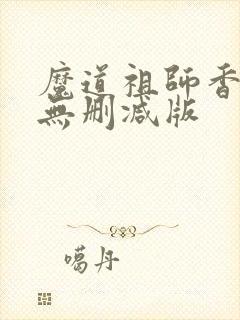 魔道祖師香
無刪減版
噶丹